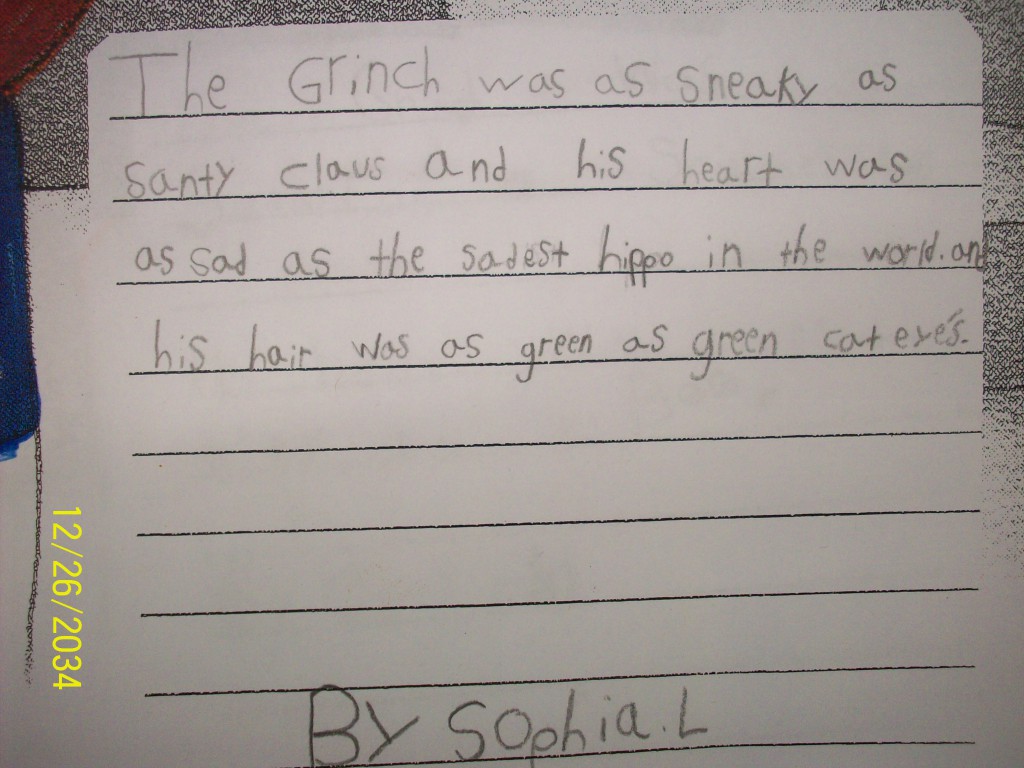 The Grinch was as sneaky as
santy claus and his heart was
as sad as the sadest hippo in the world. and
his hair was as green as green cat eye's.
By Sophia. L
12/26/2034